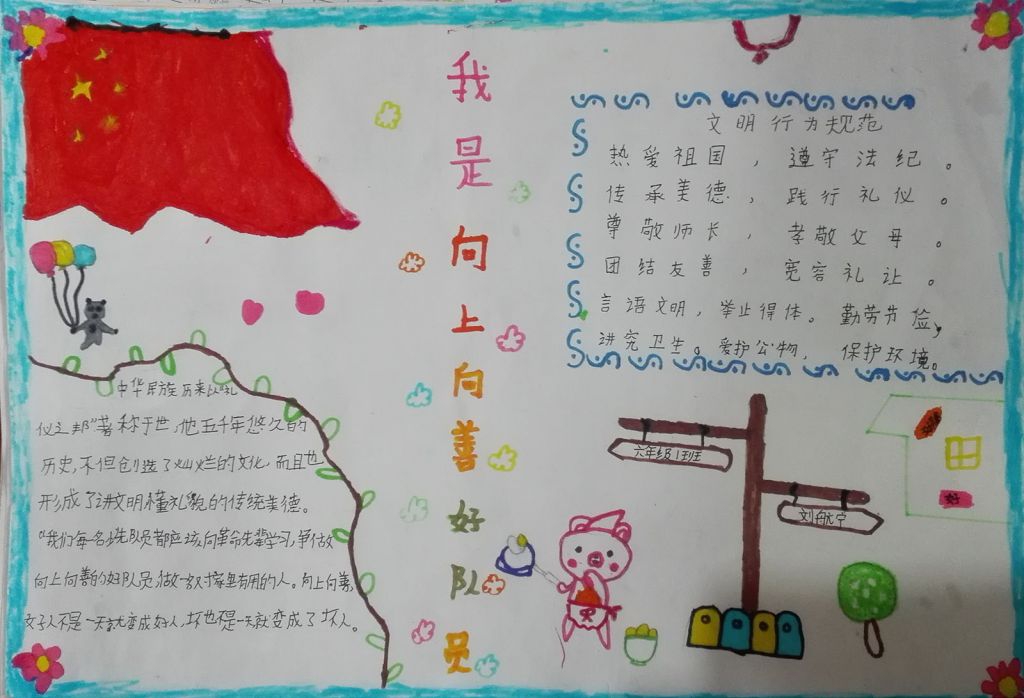 我是向上向善好队员
文明行为规范
热爱祖国，遵守法纪。
传承美德，践行礼仪。
尊敬师长，孝敬父母。
团结友善，宽容礼让。
言语文明，举止得体。勤劳节俭，
讲究卫生。爱护公物，保护环境。
中华民族历来以"礼
仪之邦"著称于世，他五千年悠久的
历史，不但创造了灿烂的文化，而且也
形成了讲文明懂礼貌的传统美德。
"我们每名少先队员都应该向革命先辈学习，争做
向上向善的好队员，做一个对国家有用的人。向上向善，
好人不是一天就变成好人，坏也不是一天就变成了坏人。
六年级1班
刘航宁